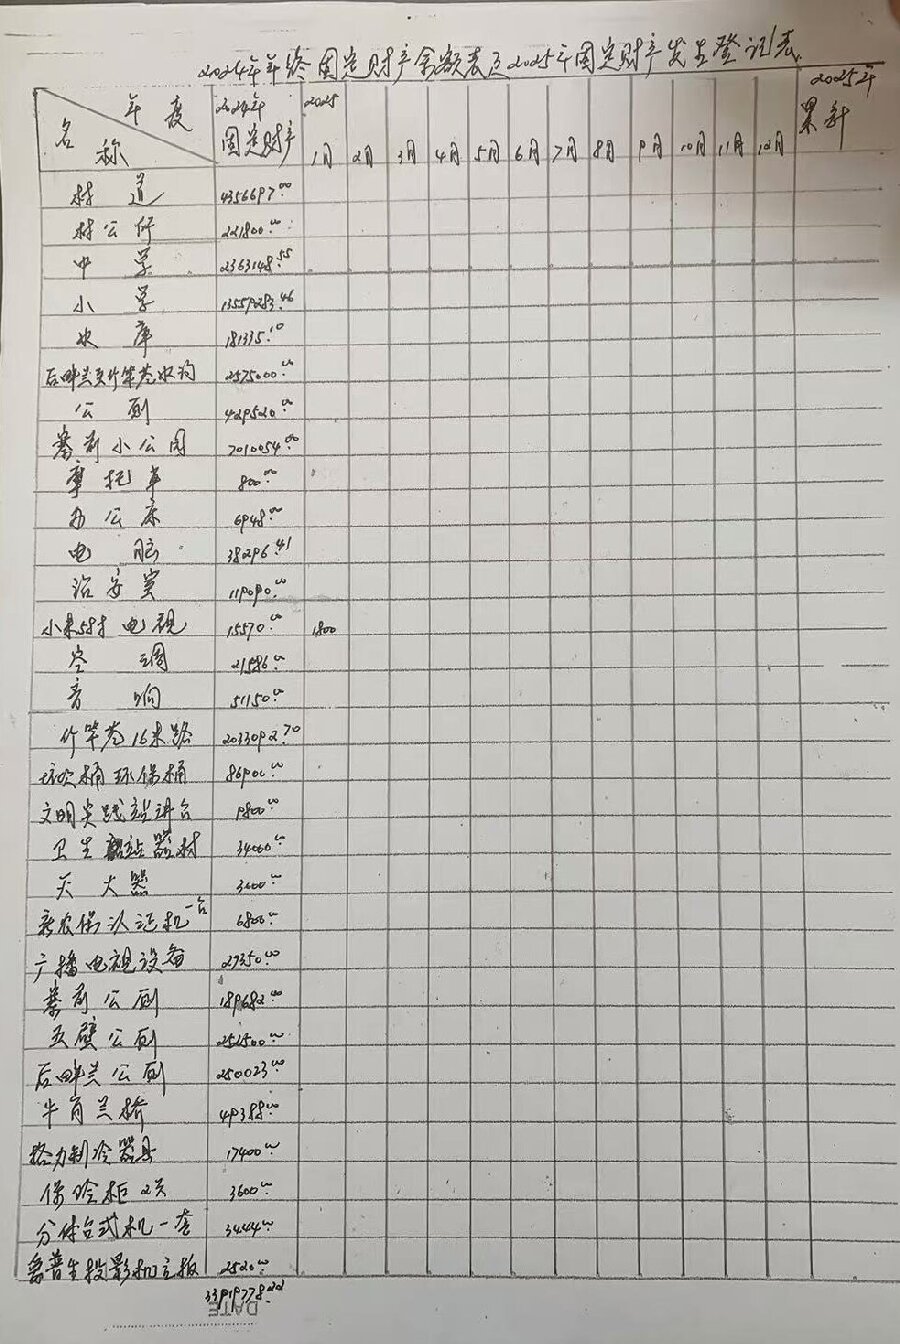 2024年年终固定财产余额表及2025年固定财产发生登记表
年度 名称 2024年固定财产 2025 1月 2月 3月 4月 5月 6月 7月 8月 9月 10月 11月 12月 2025年累计
村道 4356697.00
村公所 221800.00
中学 2363148.55
小学 13559283.46
水库 181335.10
2575000.00
公厕 429520.00
寨前小公园 7010054.00
摩托车 800.00
办公桌 6948.00
电脑 38296.41
治安室 119090.00
小米58寸电视 15570.00 1800
空调 21586.00
音响 51150.00
竹竿巷16米路 2033092.70
垃圾桶环保桶 86900.00
文明实践站讲台 1800.00
卫生站器材 34000.00
灭火器 3600.00
新农保认证机一台 6800.00
广播电视设备 27350.00
寨前公厕 189682.00
五壁公厕 252500.00
后畔兰公厕 250023.00
牛角兰桥 49388.00
格力制冷器具 17400.00
保冷柜2只 3600.00
分体台式机一套 3444.00
爱普生投影机主板 2520.00
33919778.22
DATE